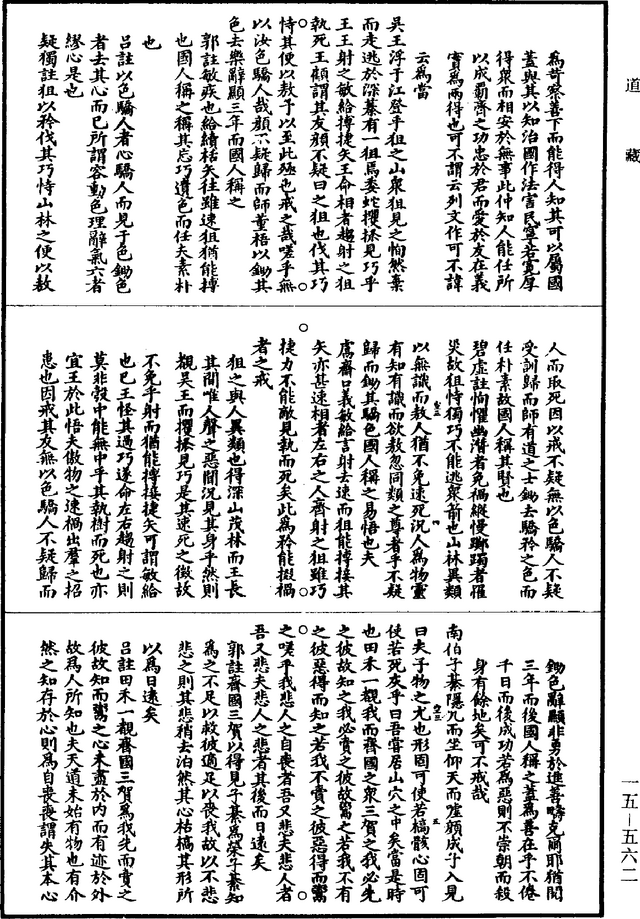 道藏
爲苛察善下而能得人知其可以屬國
蓋與其以知治國作法害民寧若寬厚
得衆而相安於無事此仲知人能任所
以成霸齊之功忠於君而愛於友在義
實爲兩得也可不謂云列文作可不諱
云爲當
吳王浮于江登乎狙之山衆狙見之恂然棄
而走逃於深蓁有一狙焉委蛇攫搔見巧乎
王王射之敏給搏捷矢王命相者趨射之狙
執死王顧謂其友顏不疑曰之狙也伐其巧
恃其便以敖予以至此殛也戒之哉嗟乎無
以汝色驕人哉顏不疑歸而師董梧以鋤其
色去樂辭顯三年而國人稱之
郭註敏疾也給續括矢往雖速狙猶能搏
也國人稱之稱其忘巧遺色而任夫素朴
也
呂註以色驕人者心驕人而見于色鋤色
者去其心而已所謂容動色理辭氣六者
繆心是也
疑獨註狙以矜伐其巧恃山林之便以敖
人而取死因以戒不疑無以色驕人不疑
受訓歸而師有道之士鋤去驕矜之色而
任朴素故國人稱其賢也
碧虛註恂懼幽潛者免禍縱慢躑躅者罹
災故狙恃獨巧不能逃衆箭也山林異類
以無識而敖人猶不免速死況人爲物靈
有知有識而欲敖忽同類之尊者乎不疑
歸而鋤其驕色國人稱之易悟也夫
鬳齋口義敏給言射去速而狙能搏接其
矢亦甚速相者左右之人齊射之狙雖巧
捷力不能敵見執而死矣此爲矜能掇禍
者之戒
狙之與人異類也得深山茂林而王長
其間唯人聲之惡聞況見其身乎然則
覩吳王而攫搔見巧是其速死之徵故
不免乎射而猶能搏接捷矢可謂敏給
也已王怪其過巧遂命左右趨射之則
莫非彀中能無中乎其執樹而死也亦
宜王於此悟夫傲物之速禍出羣之招
患也因戒其友無以色驕人不疑歸而
鋤色辭顯非勇於進善疇克爾耶猶閱
三年而後國人稱之蓋爲善在乎不倦
千日而後成功若爲惡則不崇朝而殺
身有餘地矣可不戒哉
南伯子綦隱几而坐仰天而噓顏成子入見
曰夫子物之尤也形固可使若槁骸心固可
使若死灰乎曰吾嘗居山穴之中矣當是時
也田禾一覩我而齊國之衆三賀之我必先
之彼故知之我必賣之彼故鬻之若我不有
之彼惡得而知之若我不賣之彼惡得而鬻
之嗟乎我悲人之自喪者吾又悲夫悲人者
吾又悲夫悲人之悲者其後而日遠矣
郭註齊國三賀以得見子綦爲榮子綦知
爲之不足以救彼適足以喪我故以不悲
悲之則其悲稍去泊然其心枯槁其形所
以爲日遠矣
呂註田禾一覩齊國三賀爲我先而賣之
彼故知而鬻之心未盡於內而有迹於外
故爲人所知也夫天道未始有物也有介
然之知存於心則爲自喪喪謂失其本心
一五-五六二